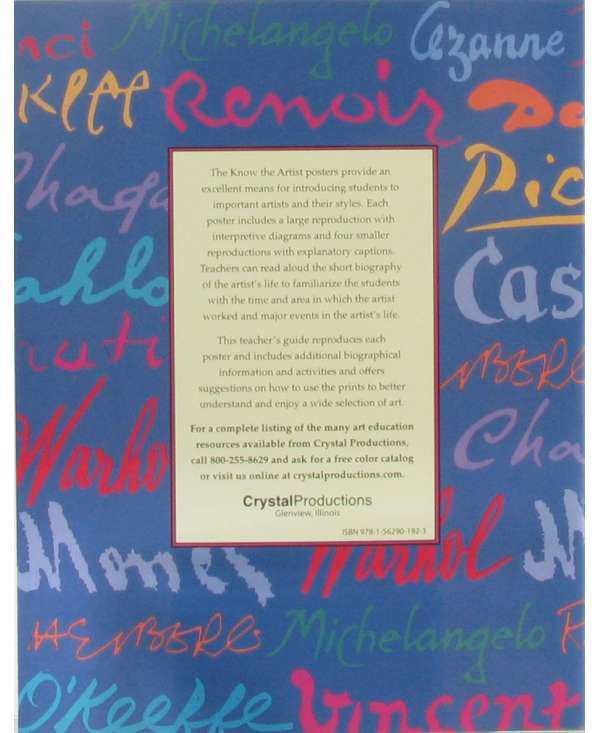 nci Michelangelo Cezanne
Klee Renoir Da
Chaga
Pic
ahlo
Cas
The Know the Artist posters provide an
excellent means for introducing students to
important artists and their styles. Each
poster includes a large reproduction with
interpretive diagrams and four smaller
reproductions with explanatory captions.
Teachers can read aloud the short biography
of the artist's life to familiarize the students
with the time and area in which the artist
worked and major events in the artist's life.
This teacher's guide reproduces each
poster and includes additional biographical
information and activities and offers
suggestions on how to use the prints to better
understand and enjoy a wide selection of art.
For a complete listing of the many art education
resources available from Crystal Productions,
call 800-255-8629 and ask for a free color catalog
or visit us online at crystalproductions.com.
CrystalProductions
Glenview, Illinois
ISBN 978-1-56290-192-3
Warho
Cha
Monet Warhol
Michelangelo R
O'Keeffe Vincent